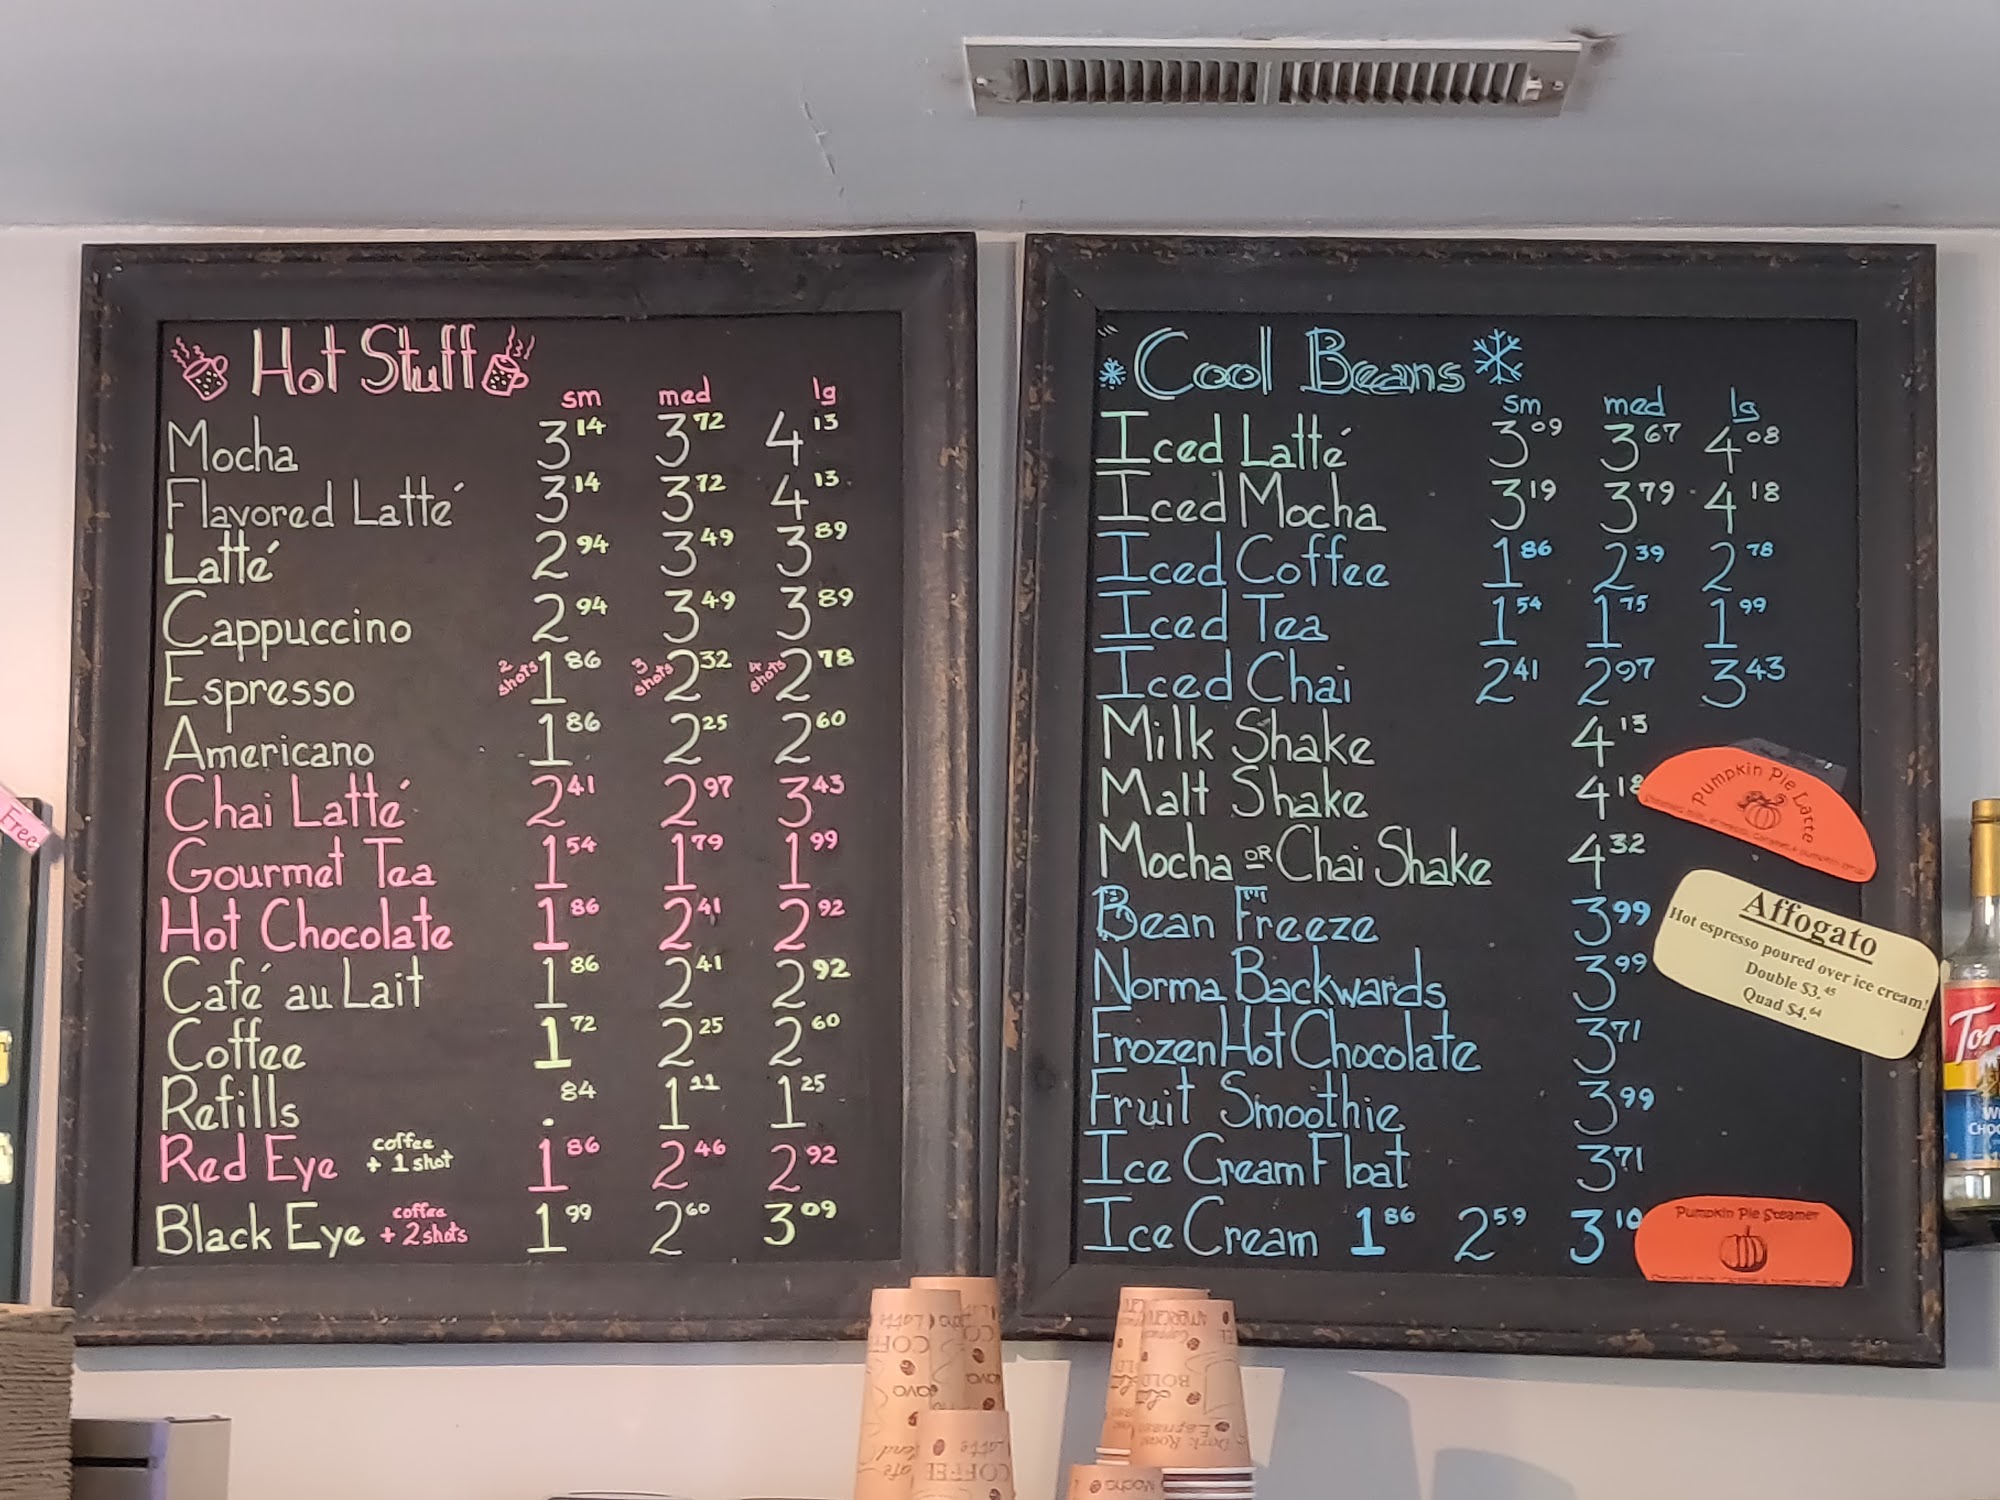 Hot Stuff
sm med lg
Mocha 3 14 3 72 4 13
Flavored Latté 3 14 3 72 4 13
Latté 2 94 3 49 3 89
Cappuccino 2 94 3 49 3 89
Espresso 2 shots 1 86 3 shots 2 32 4 shots 2 78
Americano 1 86 2 25 2 60
Chai Latté 2 41 2 97 3 43
Gourmet Tea 1 54 1 79 1 99
Hot Chocolate 1 86 2 41 2 92
Café au Lait 1 86 2 41 2 92
Coffee 1 72 2 25 2 60
Refills .84 1 11 1 25
Red Eye coffee + 1 shot 1 86 2 46 2 92
Black Eye coffee + 2 shots 1 99 2 60 3 09
Cool Beans
sm med lg
Iced Latté 3 09 3 67 4 08
Iced Mocha 3 19 3 79 4 18
Iced Coffee 1 86 2 39 2 78
Iced Tea 1 54 1 75 1 99
Iced Chai 2 41 2 97 3 43
Milk Shake 4 13
Malt Shake 4 18
Mocha OR Chai Shake 4 32
Bean Freeze 3 99
Norma Backwards 3 99
Frozen Hot Chocolate 3 71
Fruit Smoothie 3 99
Ice Cream Float 3 71
Ice Cream 1 86 2 59 3 10
Pumpkin Pie Latte
Affogato
Hot espresso poured over ice cream!
Double $3.45
Quad $4.64
Pumpkin Pie Steamer
Free
Tor